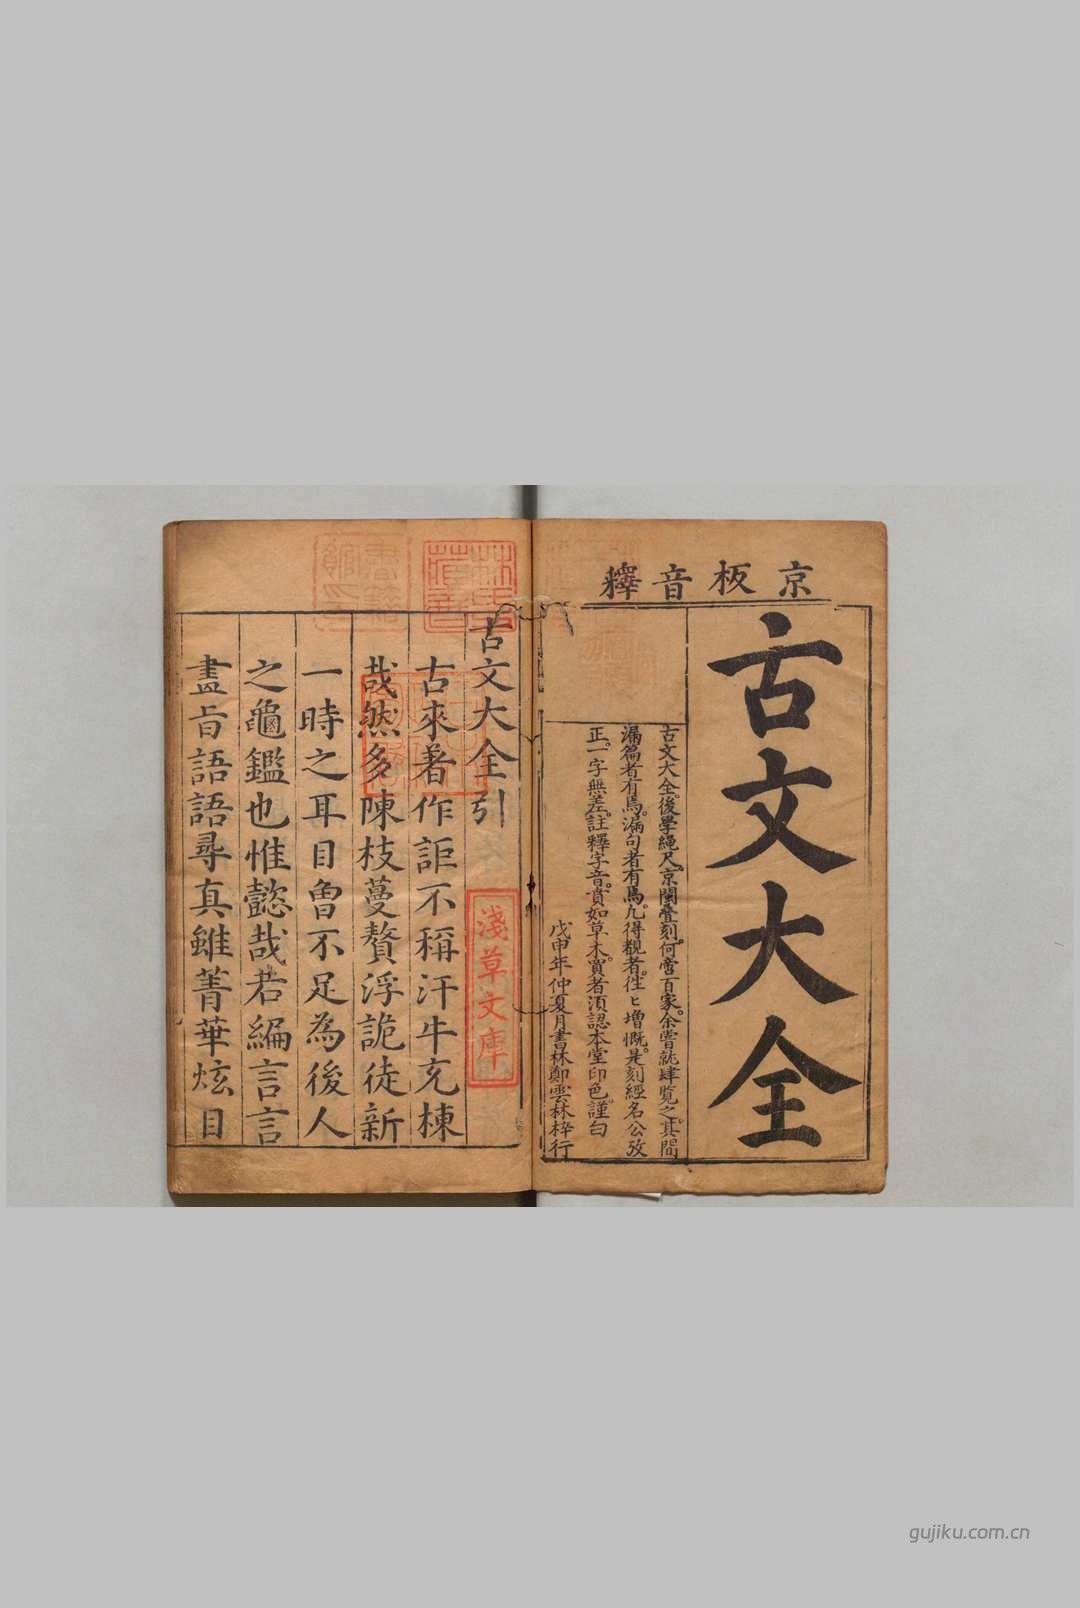 京板音釋
古文大全
古文大全後學繩尺京閩疊刻何啻百家余嘗就肆覽之其間
漏篇者有焉漏句者有焉凡得觀者往〻增慨是刻經名公攷
正一字無差註釋字音賁如草木買者須認本堂印色謹白
戊申年仲夏月書林鄭雲林梓行
古文大全引
古來著作詎不稱汗牛充棟
哉然多陳枝蔓贅浮詭徒新
一時之耳目曾不足為後人
之龜鑑也惟懿哉若編言言
盡旨語語尋真雖菁華炫目
淺草文庫
gujiku.com.cn